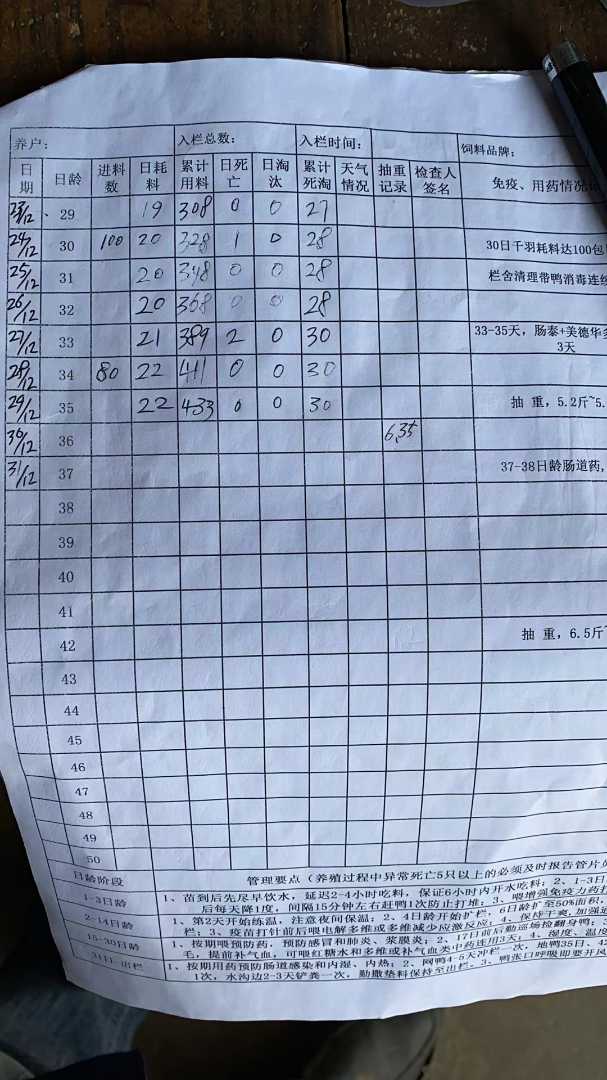 养户： 入栏总数： 入栏时间： 饲料品牌：
日期 日龄 进料数 日耗料 累计用料 日死亡 日淘汰 累计死淘 天气情况 抽重记录 检查人签名 免疫、用药情况
23/12 29 19 308 0 0 27
24/12 30 100 20 328 1 0 28 30日千羽耗料达100包
25/12 31 20 348 0 0 28 栏舍清理带鸭消毒连续
26/12 32 20 368 0 0 28
27/12 33 21 389 2 0 30 33-35天，肠泰+美德华多
3天
28/12 34 80 22 411 0 0 30
29/12 35 22 433 0 0 30 抽 重，5.2斤~5.
30/12 36 6.35
31/12 37 37-38日龄肠道药，
38
39
40
41
42 抽 重，6.5斤~
43
44
45
46
47
48
49
50
日龄阶段 管理要点（养殖过程中异常死亡5只以上的必须及时报告管片
1-3日龄 1、苗到后先尽早饮水，延迟2-4小时吃料，保证6小时内开水吃料；2、1-3日
后每天降1度，间隔15分钟左右赶鸭1次防止打堆；3、喂增强免疫力药
2-14日龄 1、第2天开始练温，注意夜间保温；2、4日龄开始扩栏，6日龄扩至50%面积，
栏；3、疫苗打针前后喂电解多维或多维减少应激反应；4、保持干爽，加强通
15-30日龄 1、按期喂预防药，预防感冒和肺炎、浆膜炎；2、17日前后勤巡场捡翻身鸭；3
毛，提前补气血，可喂红糖水和多维或补气血类中药连用3天；4、湿度、温度
31日-出栏 1、按期用药预防肠道感染和内湿、内热；2、网鸭4-5天冲栏一次，地鸭35日、42
1次，水沟边2-3天铲粪一次，勤撒垫料保持至出栏。3、鸭张口呼吸即要开风